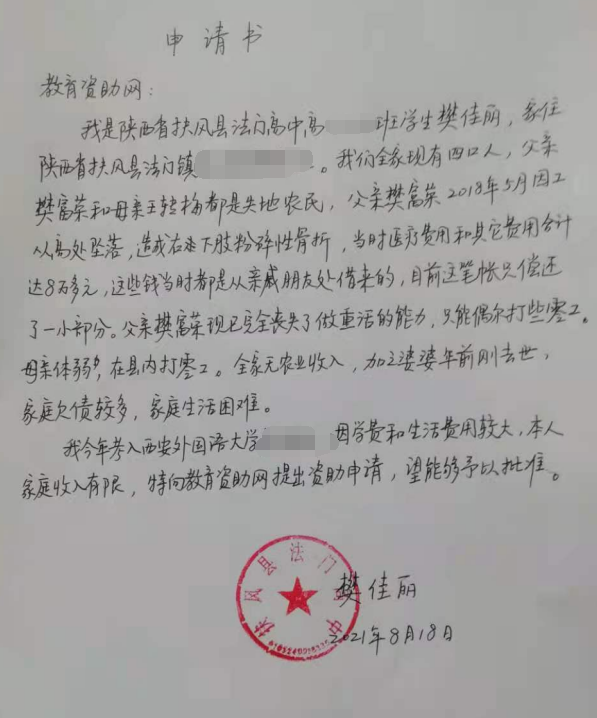 申请书
教育资助网:
我是陕西省扶风县法门高中高 班学生樊佳丽,家住
陕西省扶风县法门镇 。我们全家现有四口人,父亲
樊富荣和母亲王转梅都是失地农民,父亲樊富荣2018年5月因工
从高处坠落,造成右下肢粉碎性骨折,当时医疗费用和其它费用合计
达8万多元,这些钱当时都是从亲戚朋友处借来的,目前这笔帐只偿还
了一小部分。父亲樊富荣现已完全丧失了做重活的能力,只能偶尔打些零工。
母亲体弱,在县内打零工。全家无农业收入,加之婆婆年前刚去世,
家庭欠债较多,家庭生活困难。
我今年考入西安外国语大学 因学费和生活费用较大,本人
家庭收入有限,特向教育资助网提出资助申请,望能够予以批准。
扶风县法门高中
樊佳丽
2021年8月18日